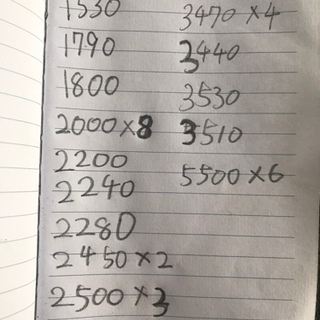 1530
1790
1800
2000×8
2200
2240
2280
2450×2
2500×3
3470×4
3440
3530
3510
5500×6